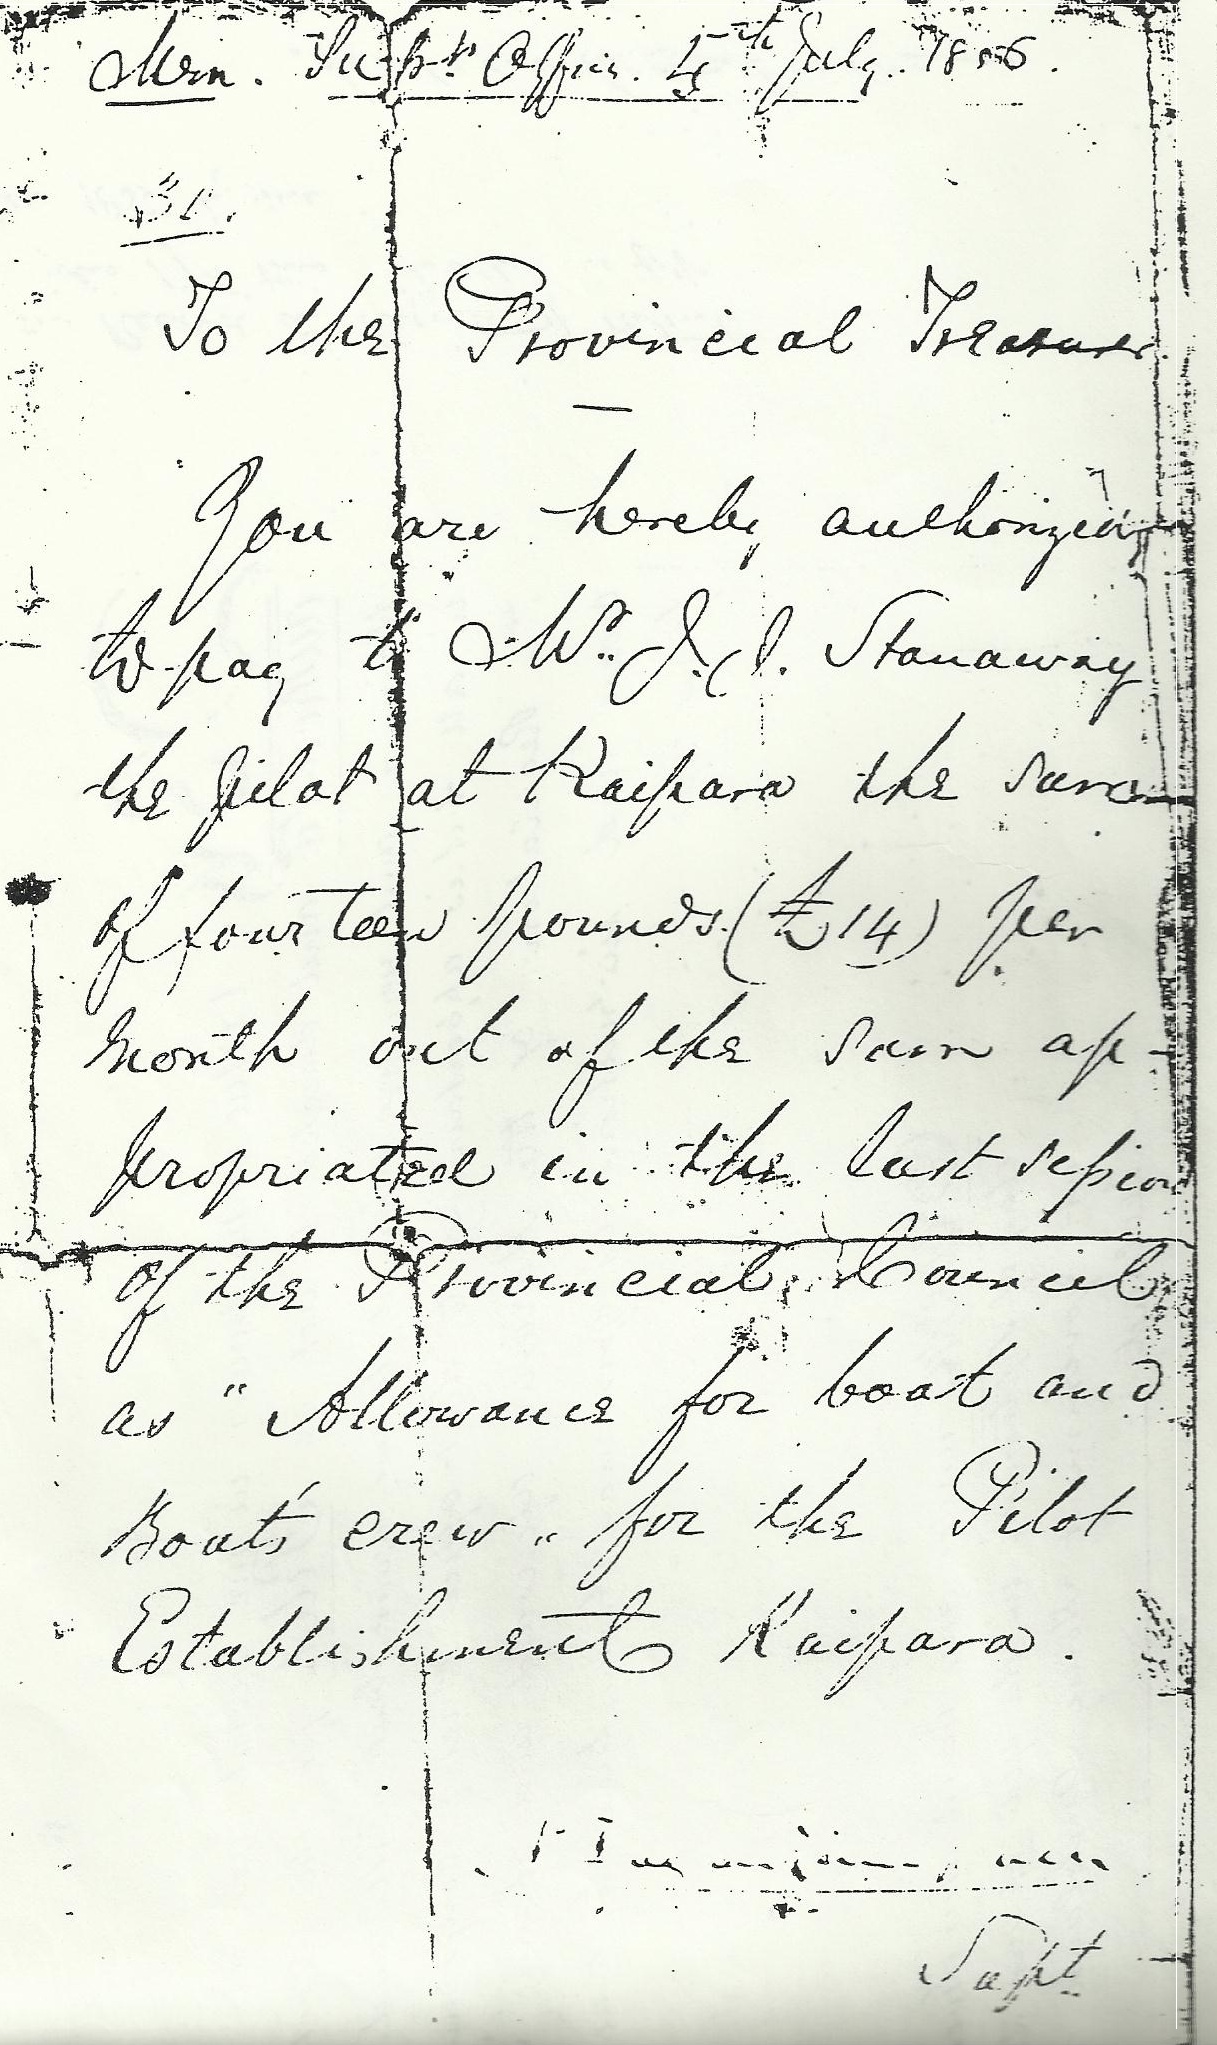 Mem. Supts Office. 4th July. 1856.
To the Provincial Treasurer
You are hereby authorized
to pay to Mr. J. J. Stanaway
the pilot at Kaipara the sum
of fourteen pounds (£14) per
month out of the sum ap-
propriated in the last session
of the Provincial Council
as "Allowance for boat and
Boat's crew" for the Pilot
Establishment Kaipara.
Supt.